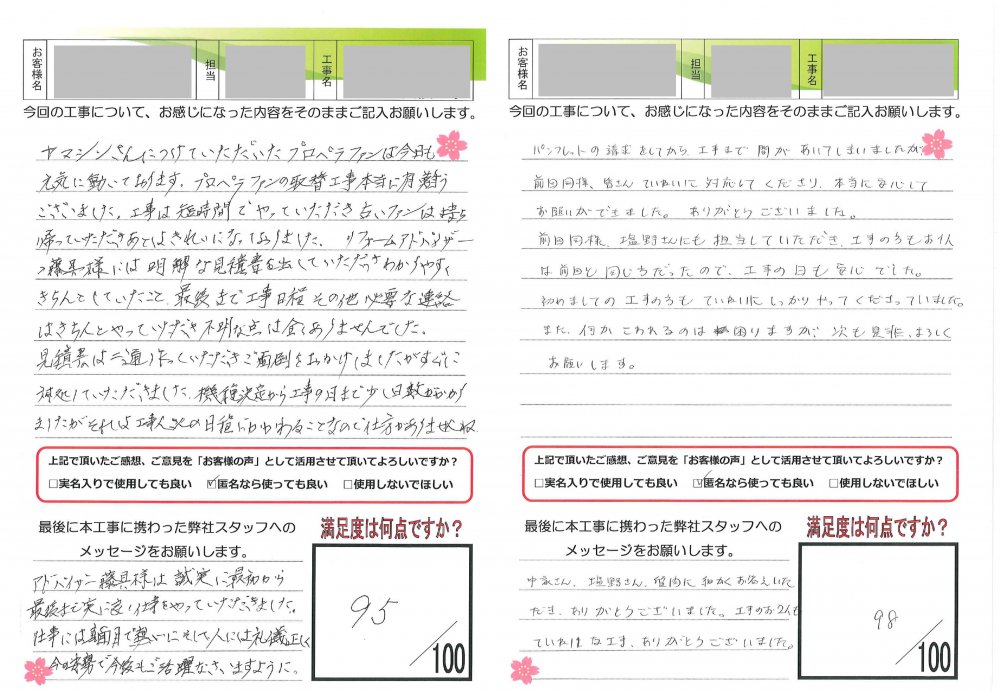 お客様名
担当
工事名
今回の工事について、お感じになった内容をそのままご記入お願いします。
ヤマシンさんにつけていただいたプロペラファンは今日も
元気に動いております。プロペラファンの取替工事本当に有難う
ございました。工事は短時間でやっていただき古いファンは持ち
帰っていただきあとはきれいになっておりました。リフォームアドバイザー
藤具様には明解な見積書を出していただきわかりやすく
きちんとしていたこと、最後まで工事日程その他必要な連絡
はきちんとやっていただき不明な点は全くありませんでした。
見積書は二通り作っていただきご面倒をおかけしましたがすぐに
対処していただきました。機種決定から工事の日まで少し日数がかかり
ましたがそれは工事人の日程にかかわることなので仕方がありません
上記で頂いたご感想、ご意見を「お客様の声」として活用させて頂いてよろしいですか？
□実名入りで使用しても良い ☑匿名なら使っても良い □使用しないでほしい
最後に本工事に携わった弊社スタッフへの
メッセージをお願いします。
アドバイザー藤具様は誠実に最初から
最後まで実に良い仕事をやっていただきました。
仕事には真面目で熱心にそして人には礼儀正しく
今の姿勢で今後もご活躍なさいますように。
満足度は何点ですか？
95
/100
お客様名
担当
工事名
今回の工事について、お感じになった内容をそのままご記入お願いします。
パンフレットの請求をしてから、工事まで間があいてしまいましたが
前回同様、皆さんていねいに対応してくださり、本当に安心して
お願いができました。ありがとうございました。
前回同様、塩野さんにも担当していただき、工事の方もお1人
は前回と同じ方だったので、工事の日も安心でした。
初めましての工事の方もていねいにしっかりやってくださっていました。
また、何かこわれるのは困りますが、次も是非、よろしく
お願いします。
上記で頂いたご感想、ご意見を「お客様の声」として活用させて頂いてよろしいですか？
□実名入りで使用しても良い ☑匿名なら使っても良い □使用しないでほしい
最後に本工事に携わった弊社スタッフへの
メッセージをお願いします。
塩野さん、質問に細かくお答えいた
だき、ありがとうございました。工事のお2人も
ていねいな工事、ありがとうございました。
満足度は何点ですか？
98
/100